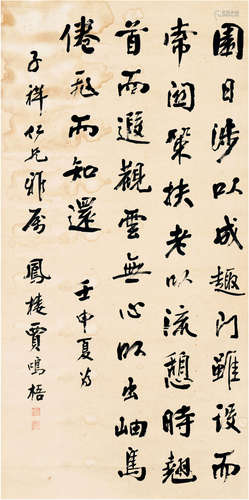 園日涉以成趣門雖設而
常關策扶老以流憩時翹
首而遐觀雲無心以出岫鳥
倦飛而知還 壬申夏為
子祥仁兄雅屬 鳳樓賈鳴梧